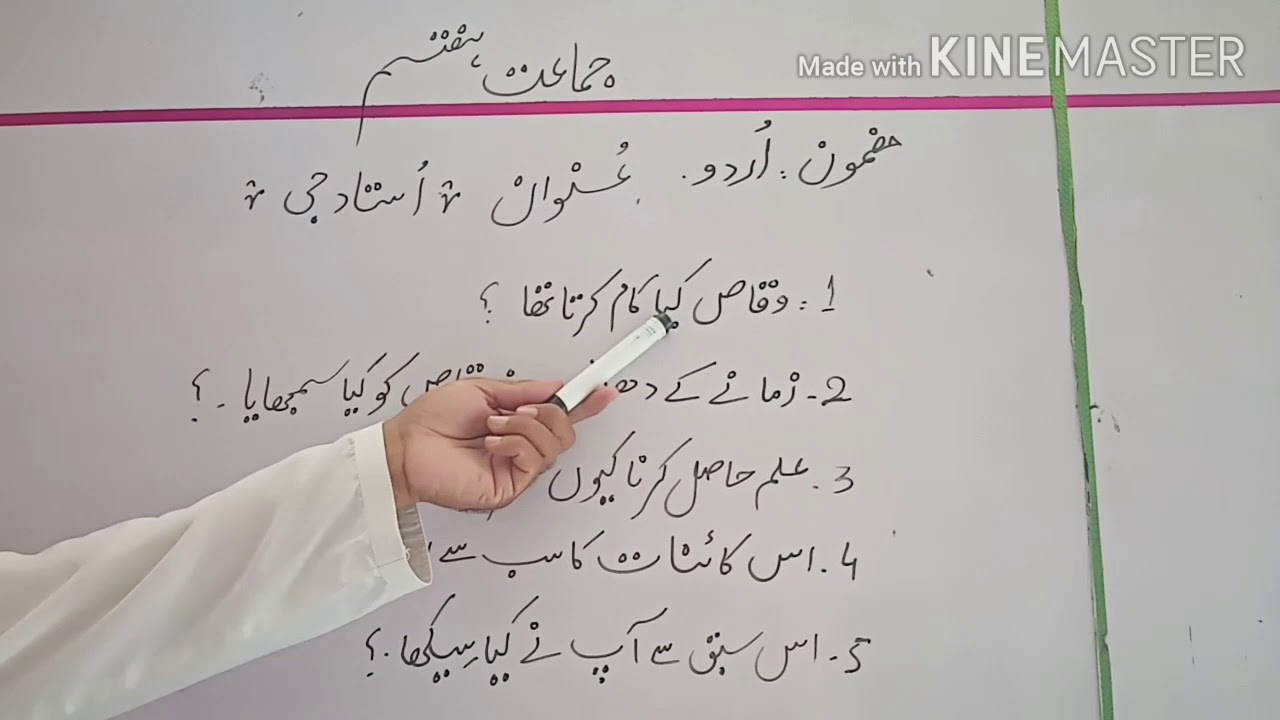 Made with KINEMASTER
جماعت ہفتم
مضمون: اُردو. عُنوان "اُستاد جی"
1: وقاص کیا کام کرتا تھا ؟
2- زمانے کے وقاص کو کیا سمجھایا -؟
3. علم حاصل کرنا کیوں
4. اس کائنات کا سب سے
5- اس سبق سے آپ نے کیا سیکھا.؟